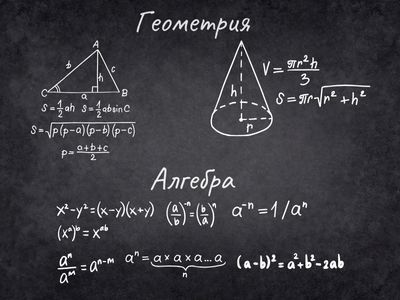 Геометрия
A
b c
h
C a B
S=½ah S=½ab sinC
S=√(p(p-a)(p-b)(p-c))
p=(a+b+c)/2
h
r
V=πr²h/3
S=πr√(r²+h²)
Алгебра
x²-y²=(x-y)(x+y) (a/b)⁻ⁿ=(b/a)ⁿ a⁻ⁿ=1/aⁿ
(xᵃ)ᵇ=xᵃᵇ
aⁿ/aᵐ=aⁿ⁻ᵐ aⁿ=a×a×a...a (a-b)²=a²+b²-2ab
n